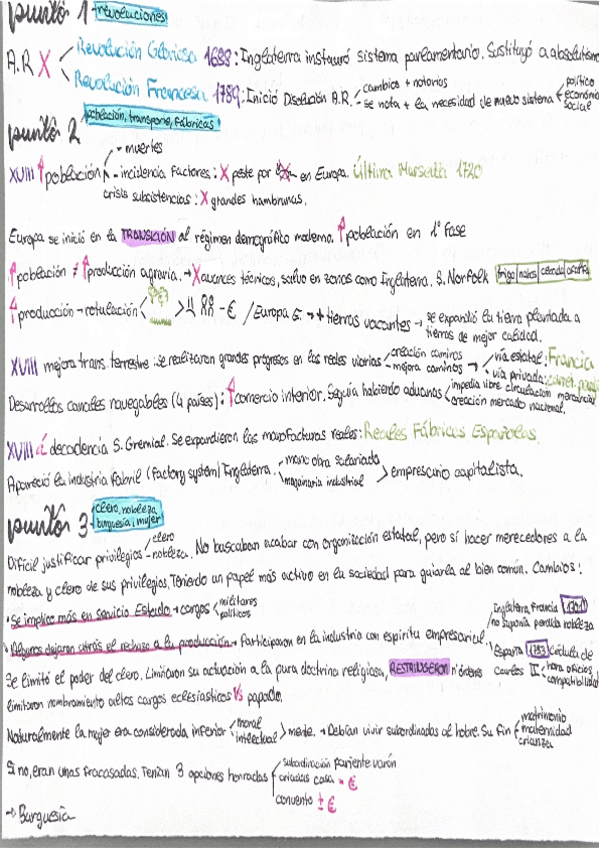 punto 1 revoluciones
A.R X Revolución Gloriosa 1688: Inglaterra instauró sistema parlamentario. Sustituyó a absolutismo
Revolución Francesa 1789: Inició Disolución A.R. - cambios + notorios
- se nota + la necesidad de nuevo sistema político económico social
punto 2 población, transporte, fábricas
XVIII ↑ población - muertes
- incidencia factores: X peste por en Europa. Última Marsella 1720
crisis subsistencias: X grandes hambrunas.
Europa se inició en la TRANSICIÓN al régimen demográfico moderno. ↑ población en 1ª Fase
↑ población ≠ ↑ producción agraria. → X avances técnicos, salvo en zonas como Inglaterra. S. Norfolk trigo nabos cebada
↑ producción → rotulación - € / Europa → + tierras vacantes → se expandió la tierra plantada a
tierras de mejor calidad.
XVIII mejora trans. terrestre: se realizaron grandes progresos en las redes viarias creación caminos
mejora caminos → vía estatal: Francia
vía privada:
Desarrollos canales navegables (4 países): ↑ comercio interior. Seguía habiendo aduanas impedía libre circulación mercancías
creación mercado nacional.
XVIII decadencia S. Gremial. Se expandieron las manofacturas reales: Reales Fábricas Españolas.
Apareció la industria fabril (factory system) Inglaterra. mano obra salariada
maquinaria industrial > empresario capitalista.
punto 3 clero, nobleza, burguesía, mujer
Difícil justificar privilegios clero
nobleza. No buscaban acabar con organización estatal, pero sí hacer merecedores a la
nobleza y clero de sus privilegios. Teniendo un papel más activo en la sociedad para guiarla al bien común. Cambios:
• Se implica más en Servicio Estado → cargos militares
políticos
• Algunos dejaron atrás el rechazo a la producción → Participaron en la industria con espíritu empresarial.
Inglaterra, Francia 1701
no suponía perdida nobleza
España 1783 Cédula de
Carlos III honra oficios,
compatibilidad
Se limitó el poder del clero. Limitaron su actuación a la pura doctrina religiosa, RESTRINGIERON nº órdenes
limitaron nombramiento altos cargos eclesiasticos Vs papado.
Naturalmente la mujer era considerada inferior moral
intelectual > mente. → Debían vivir subordinadas al hobre. Su fin matrimonio
maternidad
crianza
Si no, eran unas fracasadas. Tenían 3 opciones honradas subordinación pariente varón
criadas casa - €
convento ± €
→ Burguesía